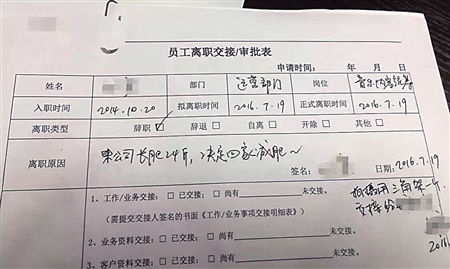 员工离职交接/审批表
申请时间： 年 月 日
姓名 部门 运营部门 岗位 音乐内容
入职时间 2014.10.20 拟离职时间 2016.7.19 正式离职时间 2016.7.19
离职类型 辞职☑ 辞退□ 自离□ 开除□ 其他□
离职原因 来公司长肥24斤，决定回家减肥～
签名： 日期：2016.7.19
1、工作/业务交接：□ 已交接；□ 尚有 未交接。
(需提交交接人签名的书面《工作/业务事项交接明细表》)
2、业务资料交接：□ 已交接；□ 尚有 未交接。
3、客户资料交接：□ 已交接；□ 尚有 未交接。
三角架一个
2016